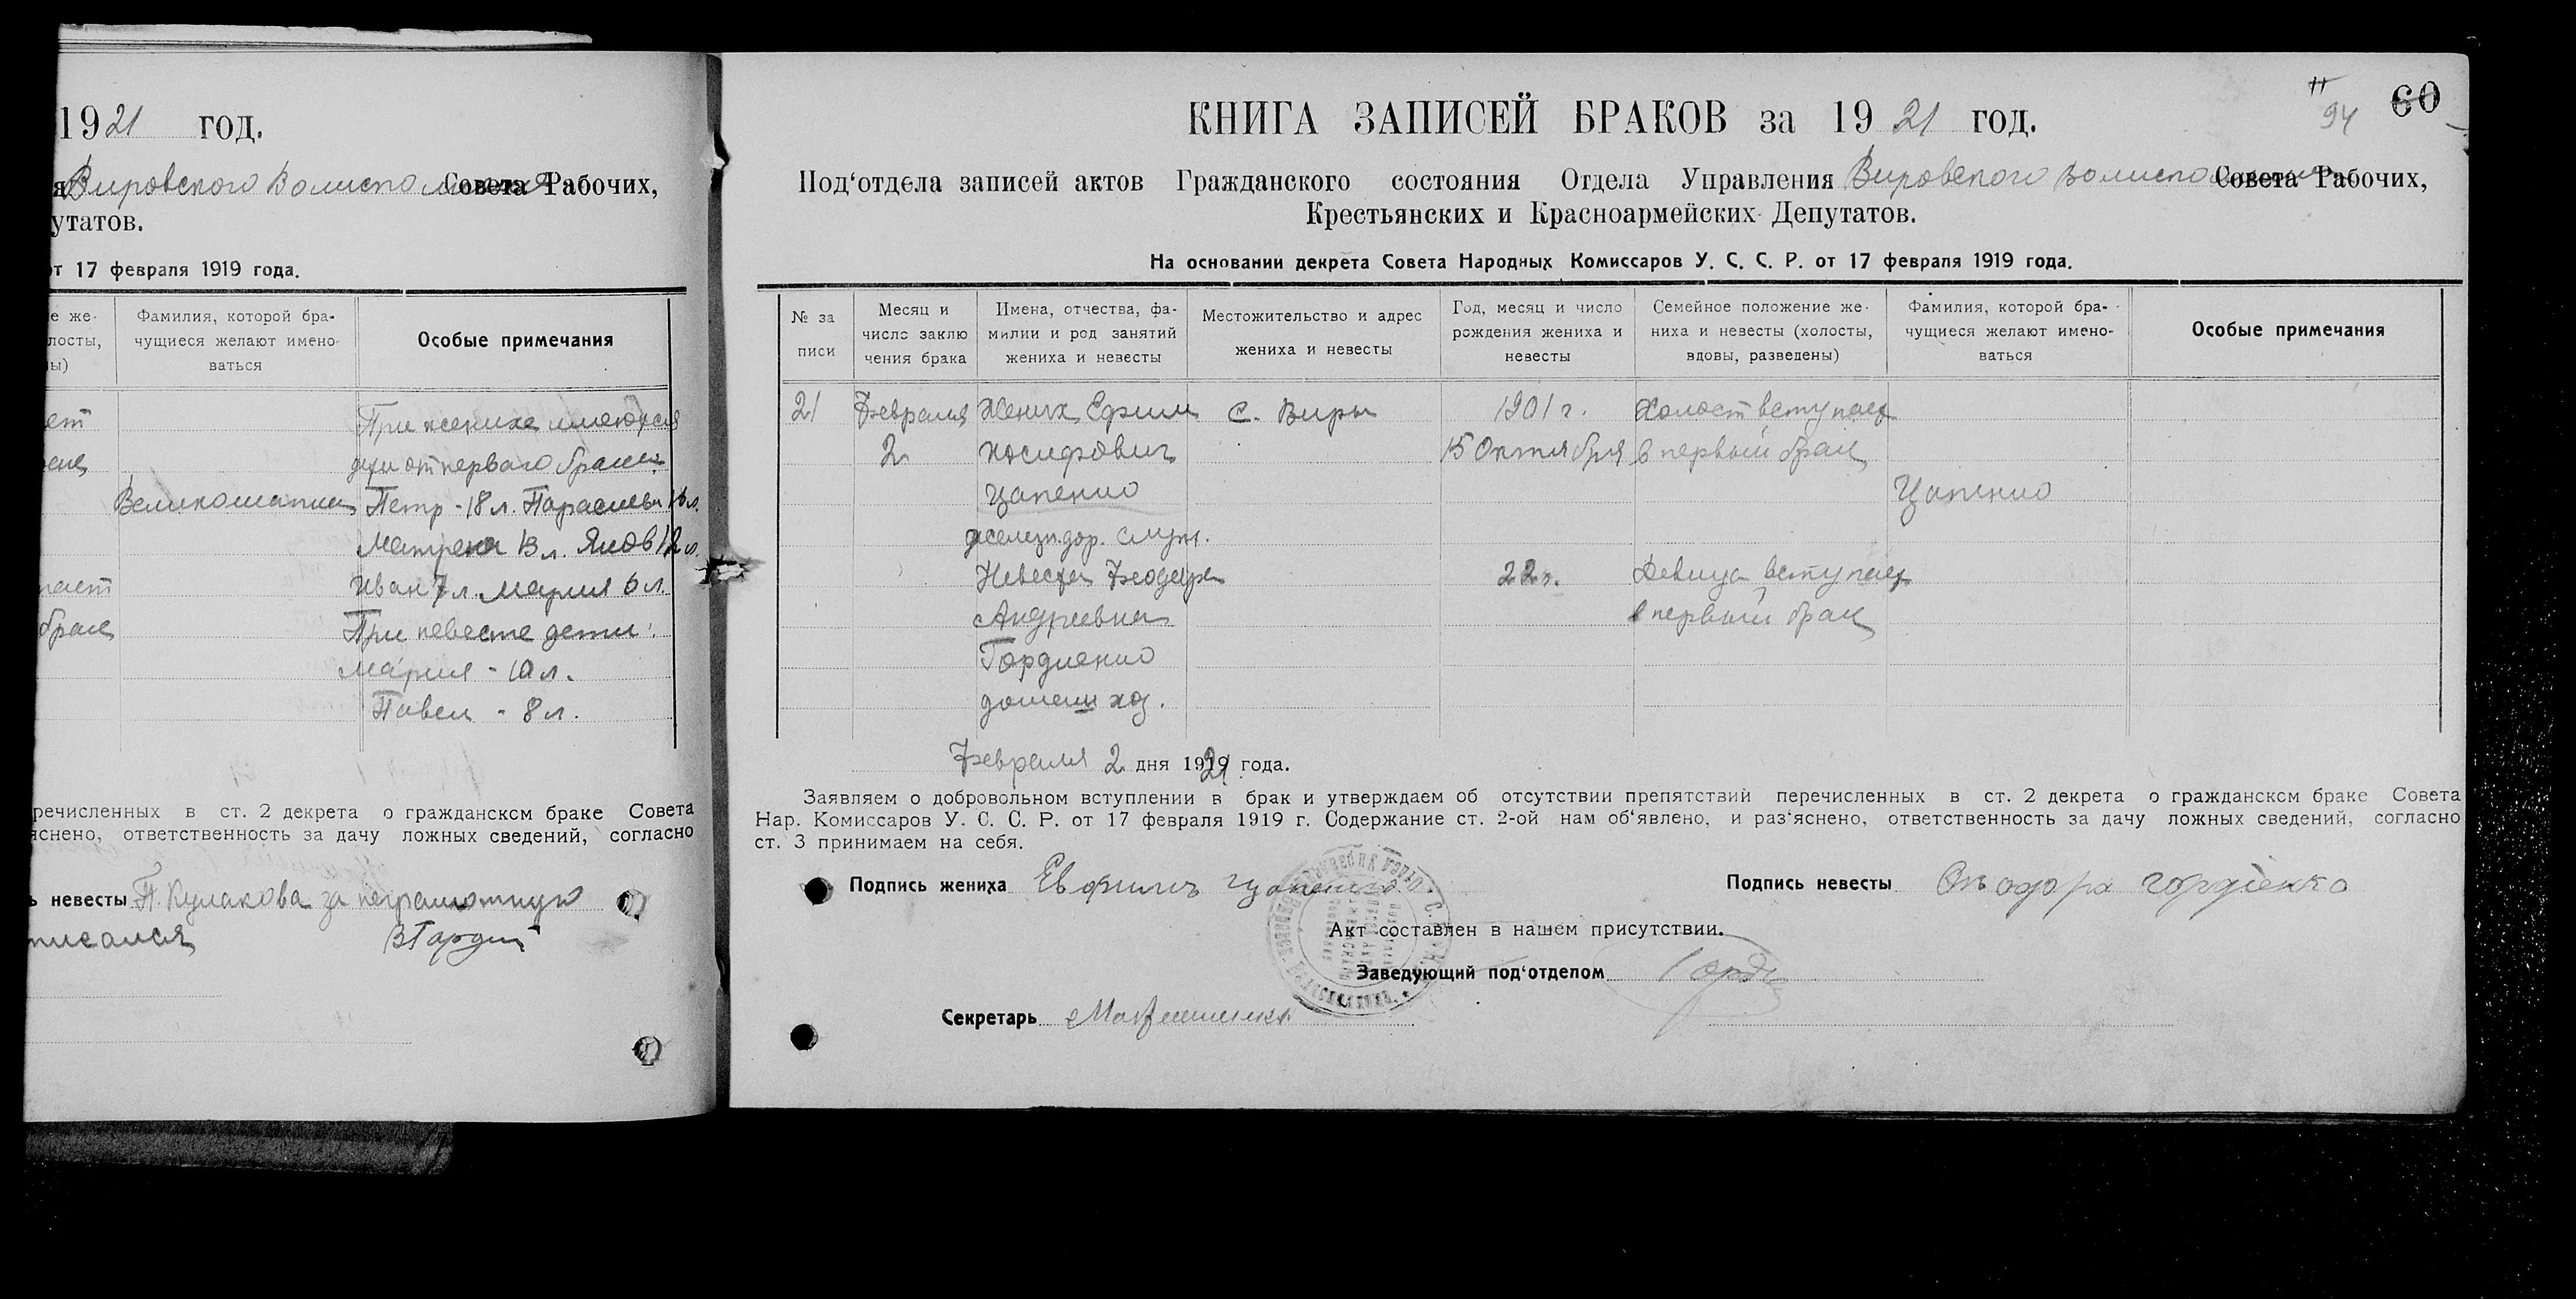 1921 год.
Вировского Волиспо Совета Рабочих,
утатов.
от 17 февраля 1919 года.
е же-
лосты,
ы)
Фамилия, которой бра-
чущиеся желают имено-
ваться
Особые примечания
При женихе имеются
дети от первого брака:
Великошапка Петр - 18 л. Параскева 16 л.
Матрена 13 л. Яков 12 л.
пает Иван 7 л. Мария 6 л.
брак При невесте дети:
Мария - 10 л.
Павел - 8 л.
речисленных в ст. 2 декрета о гражданском браке Совета
яснено, ответственность за дачу ложных сведений, согласно
ь невесты П. Кулакова за неграмотную
писался
60
94
КНИГА ЗАПИСЕЙ БРАКОВ за 1921 год.
Под'отдела записей актов Гражданского состояния Отдела Управления Вировского Волиспо Совета Рабочих,
Крестьянских и Красноармейских Депутатов.
На основании декрета Совета Народных Комиссаров У. С. С. Р. от 17 февраля 1919 года.
№ за
писи
Месяц и
число заклю
чения брака
Имена, отчества, фа-
милии и род занятий
жениха и невесты
Местожительство и адрес
жениха и невесты
Год, месяц и число
рождения жениха и
невесты
Семейное положение же-
ниха и невесты (холосты,
вдовы, разведены)
Фамилия, которой бра-
чущиеся желают имено-
ваться
Особые примечания
21 Февраля Жених Ефим с. Виры 1901 г. Холост вступает
2 Иосифович 15 Октября в первый брак
Цапенко Цапенко
железн. дор. служ.
Невеста Феодора 22 г. Девица вступает
Андреевна в первый брак
Гордиенко
домаш хоз.
Февраля 2 дня 1921 года.
Заявляем о добровольном вступлении в брак и утверждаем об отсутствии препятствий перечисленных в ст. 2 декрета о гражданском браке Совета
Нар. Комиссаров У. С. С. Р. от 17 февраля 1919 г. Содержание ст. 2-ой нам об'явлено, и раз'яснено, ответственность за дачу ложных сведений, согласно
ст. 3 принимаем на себя.
Подпись жениха Евфимъ Цапенко Подпись невесты Ѳѣодора Гордіенко
Акт составлен в нашем присутствии.
Заведующий под'отделом
Секретарь